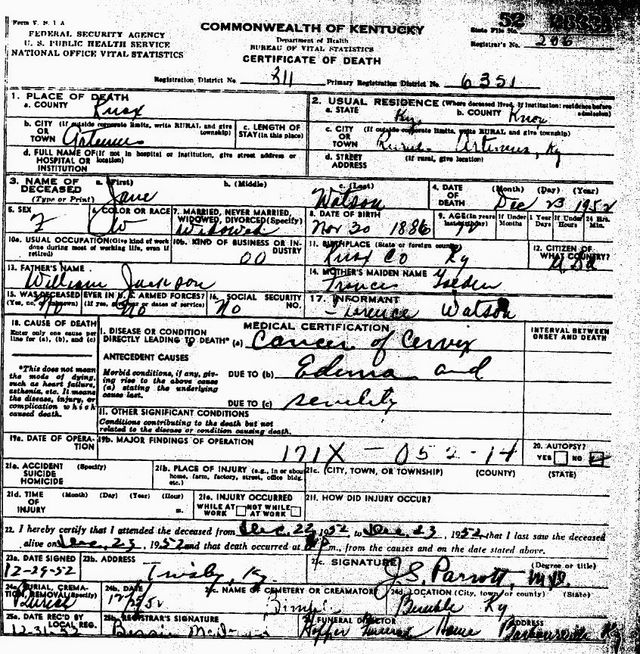 Form V. S. 1 A
FEDERAL SECURITY AGENCY
U. S. PUBLIC HEALTH SERVICE
NATIONAL OFFICE VITAL STATISTICS
COMMONWEALTH OF KENTUCKY
Department of Health
BUREAU OF VITAL STATISTICS
CERTIFICATE OF DEATH
52
State File No.
Registrar's No. 206
Registration District No. 311 Primary Registration District No. 6351
1. PLACE OF DEATH
a. COUNTY Knox
b. CITY (If outside corporate limits, write RURAL and give township)
OR TOWN Artemus
c. LENGTH OF STAY (in this place)
d. FULL NAME OF (If not in hospital or institution, give street address or location)
HOSPITAL OR INSTITUTION
2. USUAL RESIDENCE (Where deceased lived, if institution: residence before admission)
a. STATE Ky b. COUNTY Knox
c. CITY (If outside corporate limits, write RURAL and give township)
OR TOWN Rural Artemus, Ky
d. STREET ADDRESS (If rural, give location)
3. NAME OF DECEASED (Type or Print)
a. (First) Jane b. (Middle) c. (Last) Watson
4. DATE OF DEATH (Month) (Day) (Year) Dec 23 1952
5. SEX F
6. COLOR OR RACE W
7. MARRIED, NEVER MARRIED, WIDOWED, DIVORCED (Specify) Widowed
8. DATE OF BIRTH Nov 30 1886
9. AGE (In years last birthday) If Under 1 Year Months Days If Under 24 Hrs. Hours Min.
10a. USUAL OCCUPATION (Give kind of work done during most of working life, even if retired)
10b. KIND OF BUSINESS OR INDUSTRY 00
11. BIRTHPLACE (State or foreign country) Knox Co Ky
12. CITIZEN OF WHAT COUNTRY? USA
13. FATHER'S NAME William Jackson
14. MOTHER'S MAIDEN NAME Frances
15. WAS DECEASED EVER IN U. S. ARMED FORCES? (Yes, no, or unknown) (If yes, give war or dates of service) No
16. SOCIAL SECURITY NO. No
17. INFORMANT Florence Watson
18. CAUSE OF DEATH
Enter only one cause per line for (a), (b), and (c)
*This does not mean the mode of dying, such as heart failure, asthenia, etc. It means the disease, injury, or complication which caused death.
MEDICAL CERTIFICATION
INTERVAL BETWEEN ONSET AND DEATH
I. DISEASE OR CONDITION DIRECTLY LEADING TO DEATH* (a) Cancer of Cervix
ANTECEDENT CAUSES
Morbid conditions, if any, giving rise to the above cause (a) stating the underlying cause last.
DUE TO (b) Edema and
DUE TO (c) senility
II. OTHER SIGNIFICANT CONDITIONS
Conditions contributing to the death but not related to the disease or condition causing death.
19a. DATE OF OPERATION
19b. MAJOR FINDINGS OF OPERATION
171X - 052-14
20. AUTOPSY? YES NO
21a. ACCIDENT SUICIDE HOMICIDE (Specify)
21b. PLACE OF INJURY (e.g., in or about home, farm, factory, street, office bldg. etc.)
21c. (CITY, TOWN, OR TOWNSHIP) (COUNTY) (STATE)
21d. TIME OF INJURY (Month) (Day) (Year) (Hour) m.
21e. INJURY OCCURRED WHILE AT WORK NOT WHILE AT WORK
21f. HOW DID INJURY OCCUR?
22. I hereby certify that I attended the deceased from Dec. 22, 1952, to Dec. 23, 1952 that I last saw the deceased
alive on Dec. 23, 1952 and that death occurred at p m., from the causes and on the date stated above.
23a. DATE SIGNED 12-29-52
23b. ADDRESS Trosby, Ky.
23c. SIGNATURE (Degree or title) J.S. Parrott, MD
24a. BURIAL, CREMATION, REMOVAL (Specify) Burial
24b. DATE
24c. NAME OF CEMETERY OR CREMATORY
24d. LOCATION (City, town, or county) (State) Bimble Ky
25a. DATE REC'D BY LOCAL REG. 12-31-52
25b. REGISTRAR'S SIGNATURE
FUNERAL DIRECTOR ADDRESS
Hopper Funeral Home Barbourville Ky